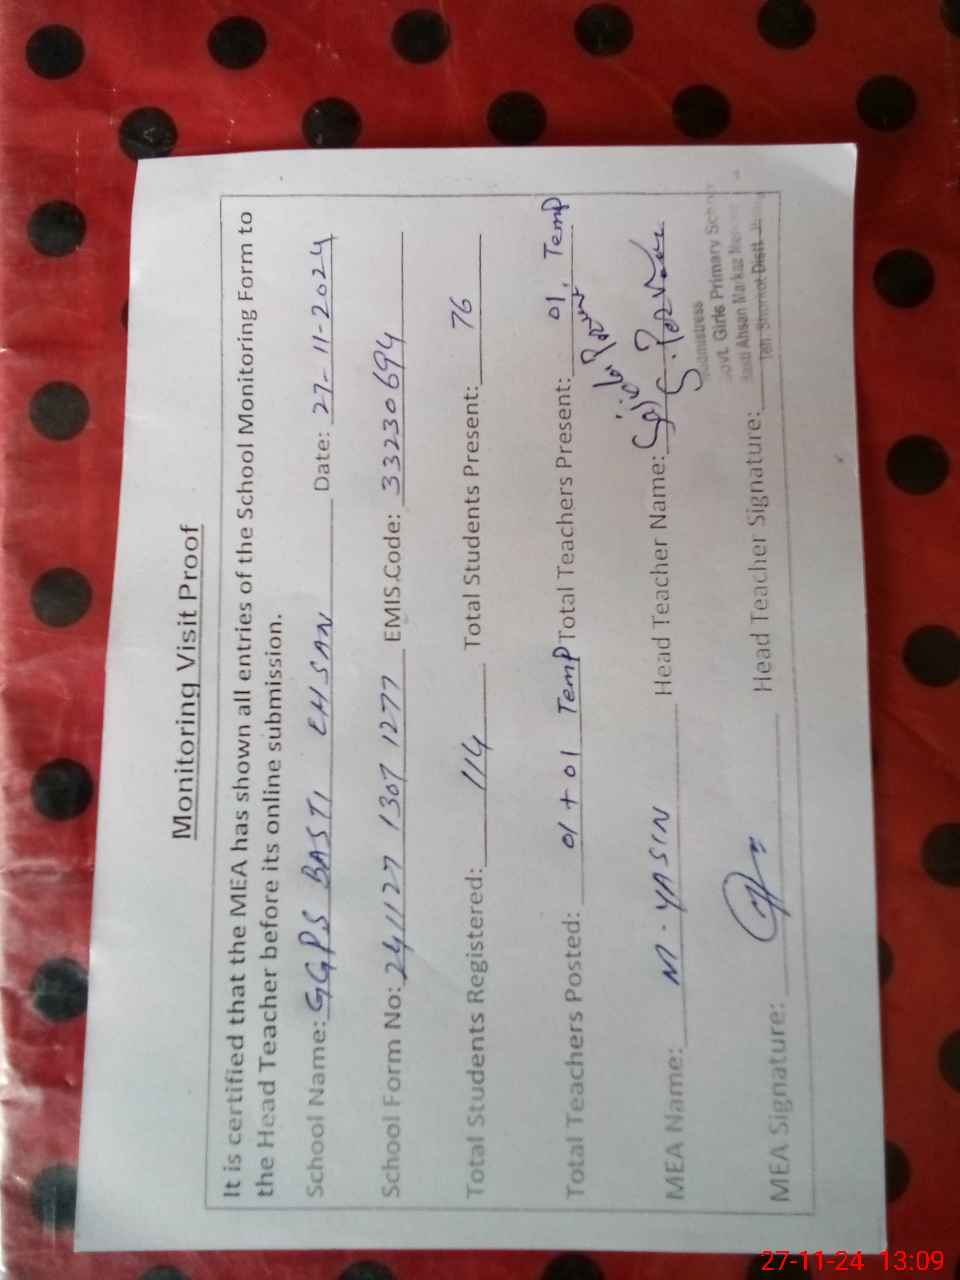 Monitoring Visit Proof
It is certified that the MEA has shown all entries of the School Monitoring Form to
the Head Teacher before its online submission.
School Name: GGPS BASTI EHSAN Date: 27-11-2024
School Form No: 241127 1307 1277 EMIS Code: 33230694
Total Students Registered: 114 Total Students Present: 76
Total Teachers Posted: 01 + 01 Temp Total Teachers Present: 01, Temp
MEA Name: M. YASIN Head Teacher Name:
MEA Signature: Head Teacher Signature:
Govt. Girls Primary School
Basti Ahsan Markaz
Teh. Shorkot Distt.
27-11-24 13:09